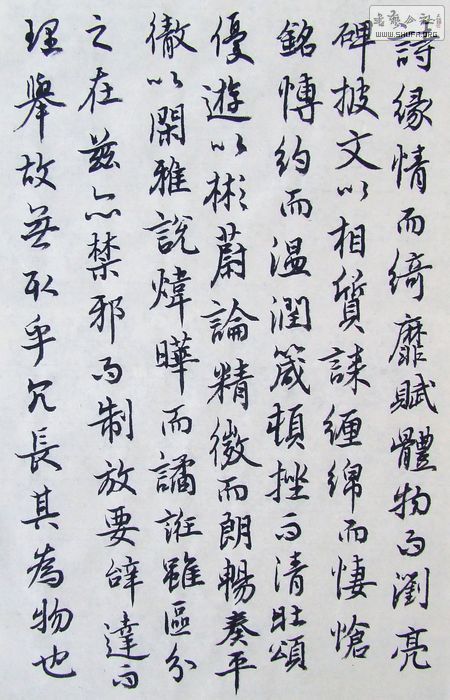 詩緣情而綺靡賦體物而瀏亮
碑披文以相質誄纏綿而悽愴
銘愽約而溫潤箴頓挫而清壯頌
優遊以彬蔚論精微而朗暢奏平
徹以閑雅說煒曄而譎誑雖區分
之在茲亦禁邪而制放要辭達而
理舉故無取乎冗長其為物也
书艺公社
WWW.SHUFA.ORG